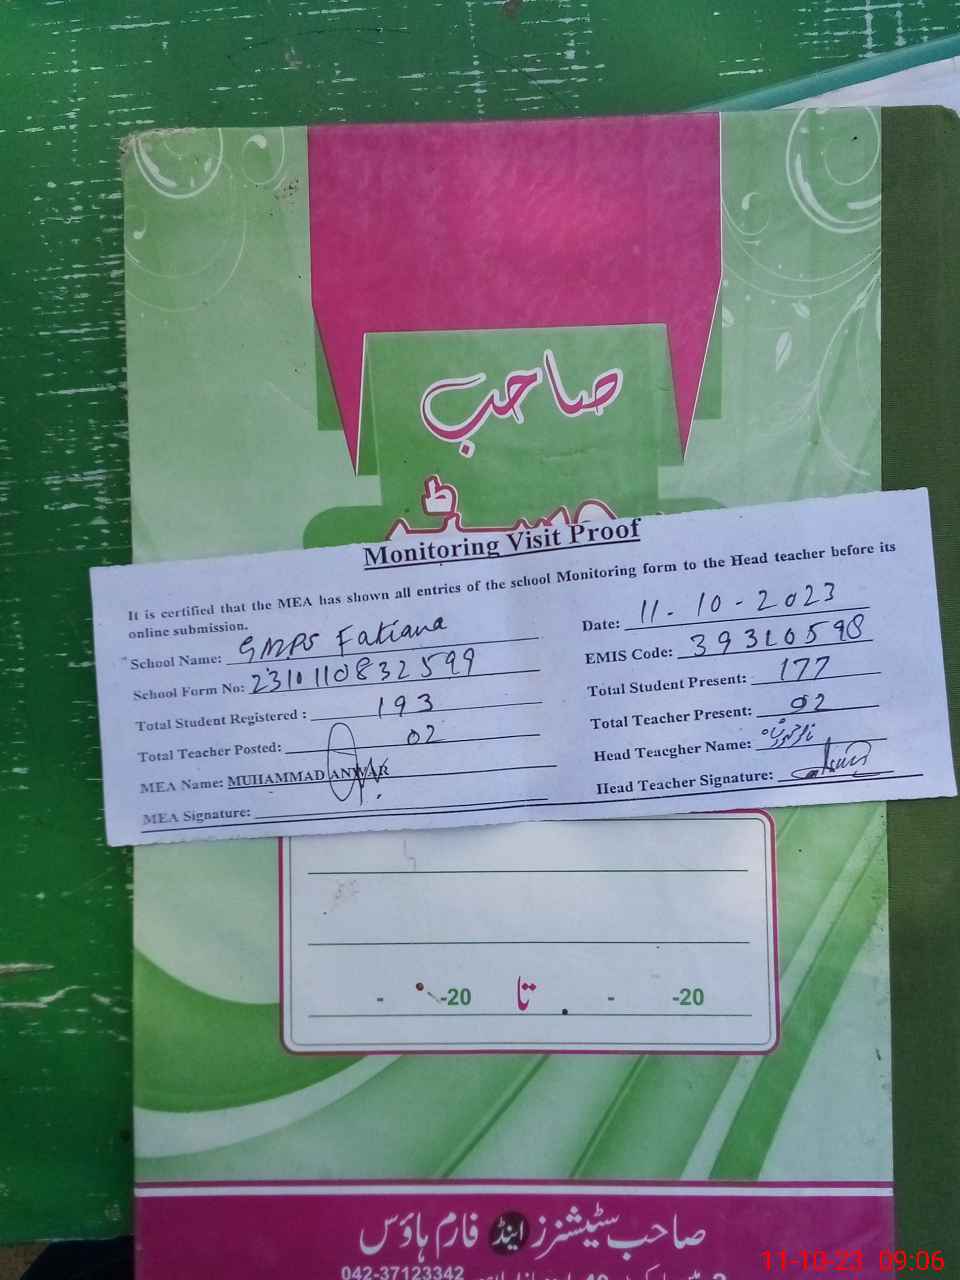 صاحب
Monitoring Visit Proof
It is certified that the MEA has shown all entries of the school Monitoring form to the Head teacher before its
online submission.
Date: 11-10-2023
School Name: GMPS Fatiana
EMIS Code: 39310598
School Form No: 2310110832599
Total Student Present: 177
Total Student Registered : 193
Total Teacher Present: 02
Total Teacher Posted: 02
Head Teacgher Name:
MEA Name: MUHAMMAD ANWAR
Head Teacher Signature:
MEA Signature:
- -20 تا - -20
صاحب سٹیشنرز اینڈ فارم ہاؤس
042-37123342
11-10-23 09:06